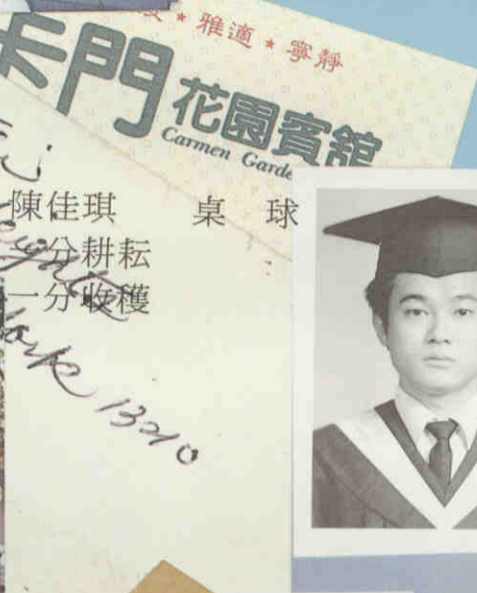 雅適★寧靜
卡門花園賓館
Carmen Garde
陳佳琪 桌 球
一分耕耘
一分收穫
13210